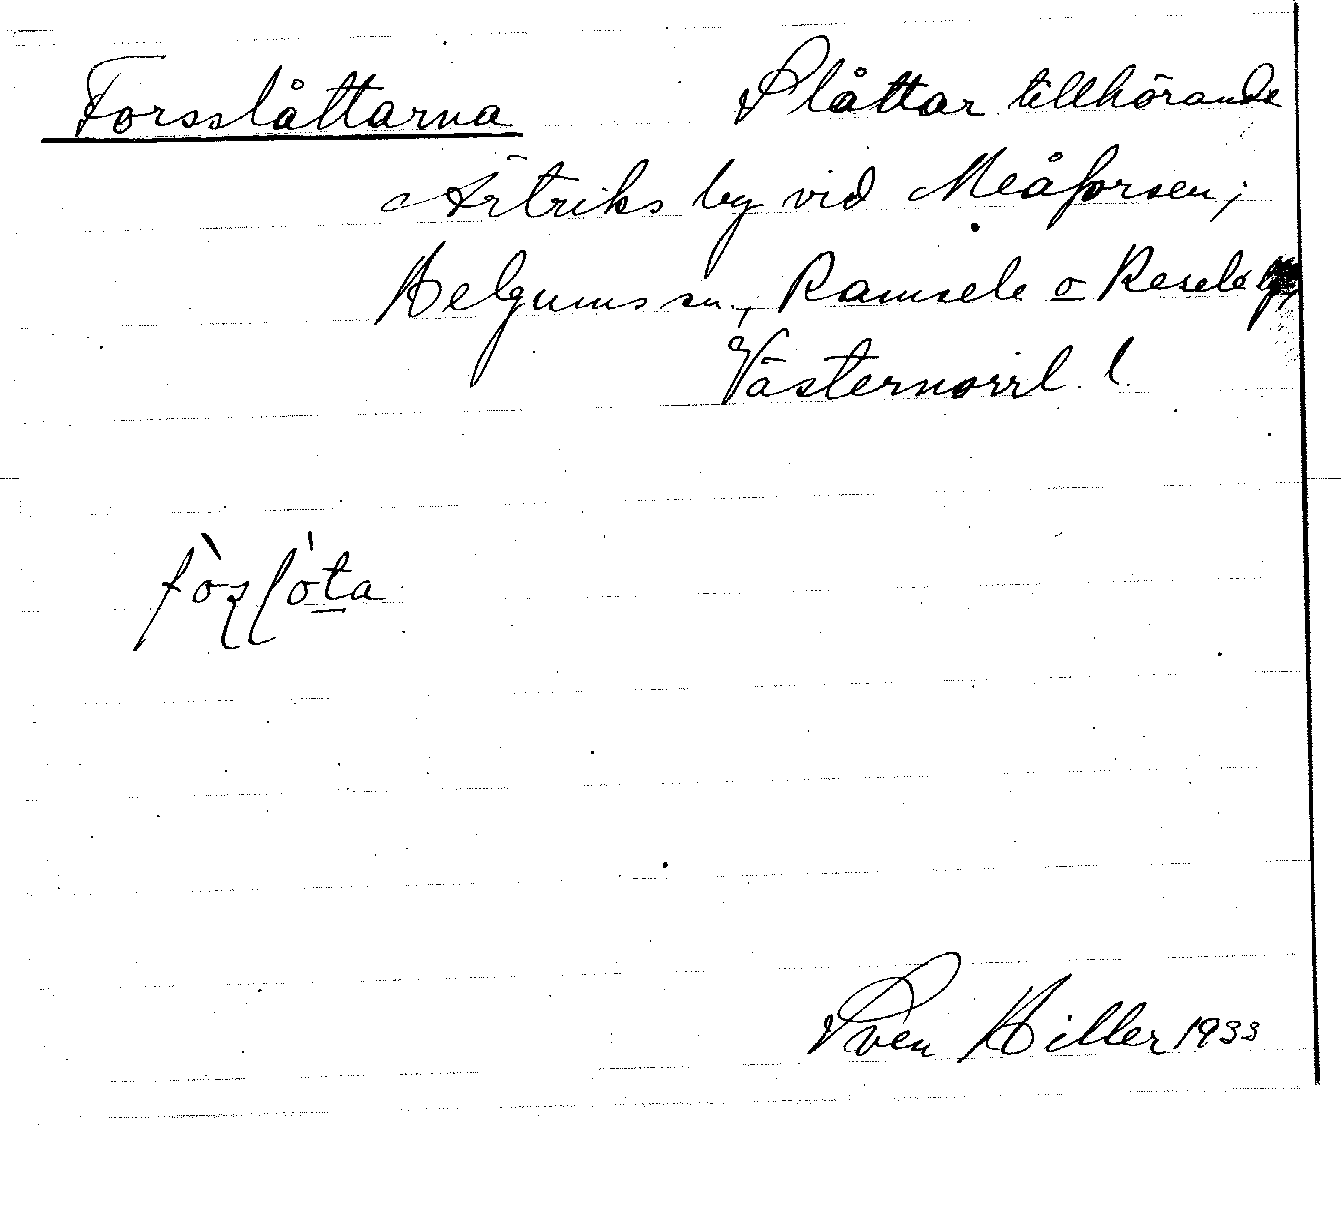 Forsslåttarna Slåttar tillhörande
Ärtriks by vid Meåforsen;
Helgums sn., Ramsele o Resele
Västernorrl. l.
Sven Hiller 1933